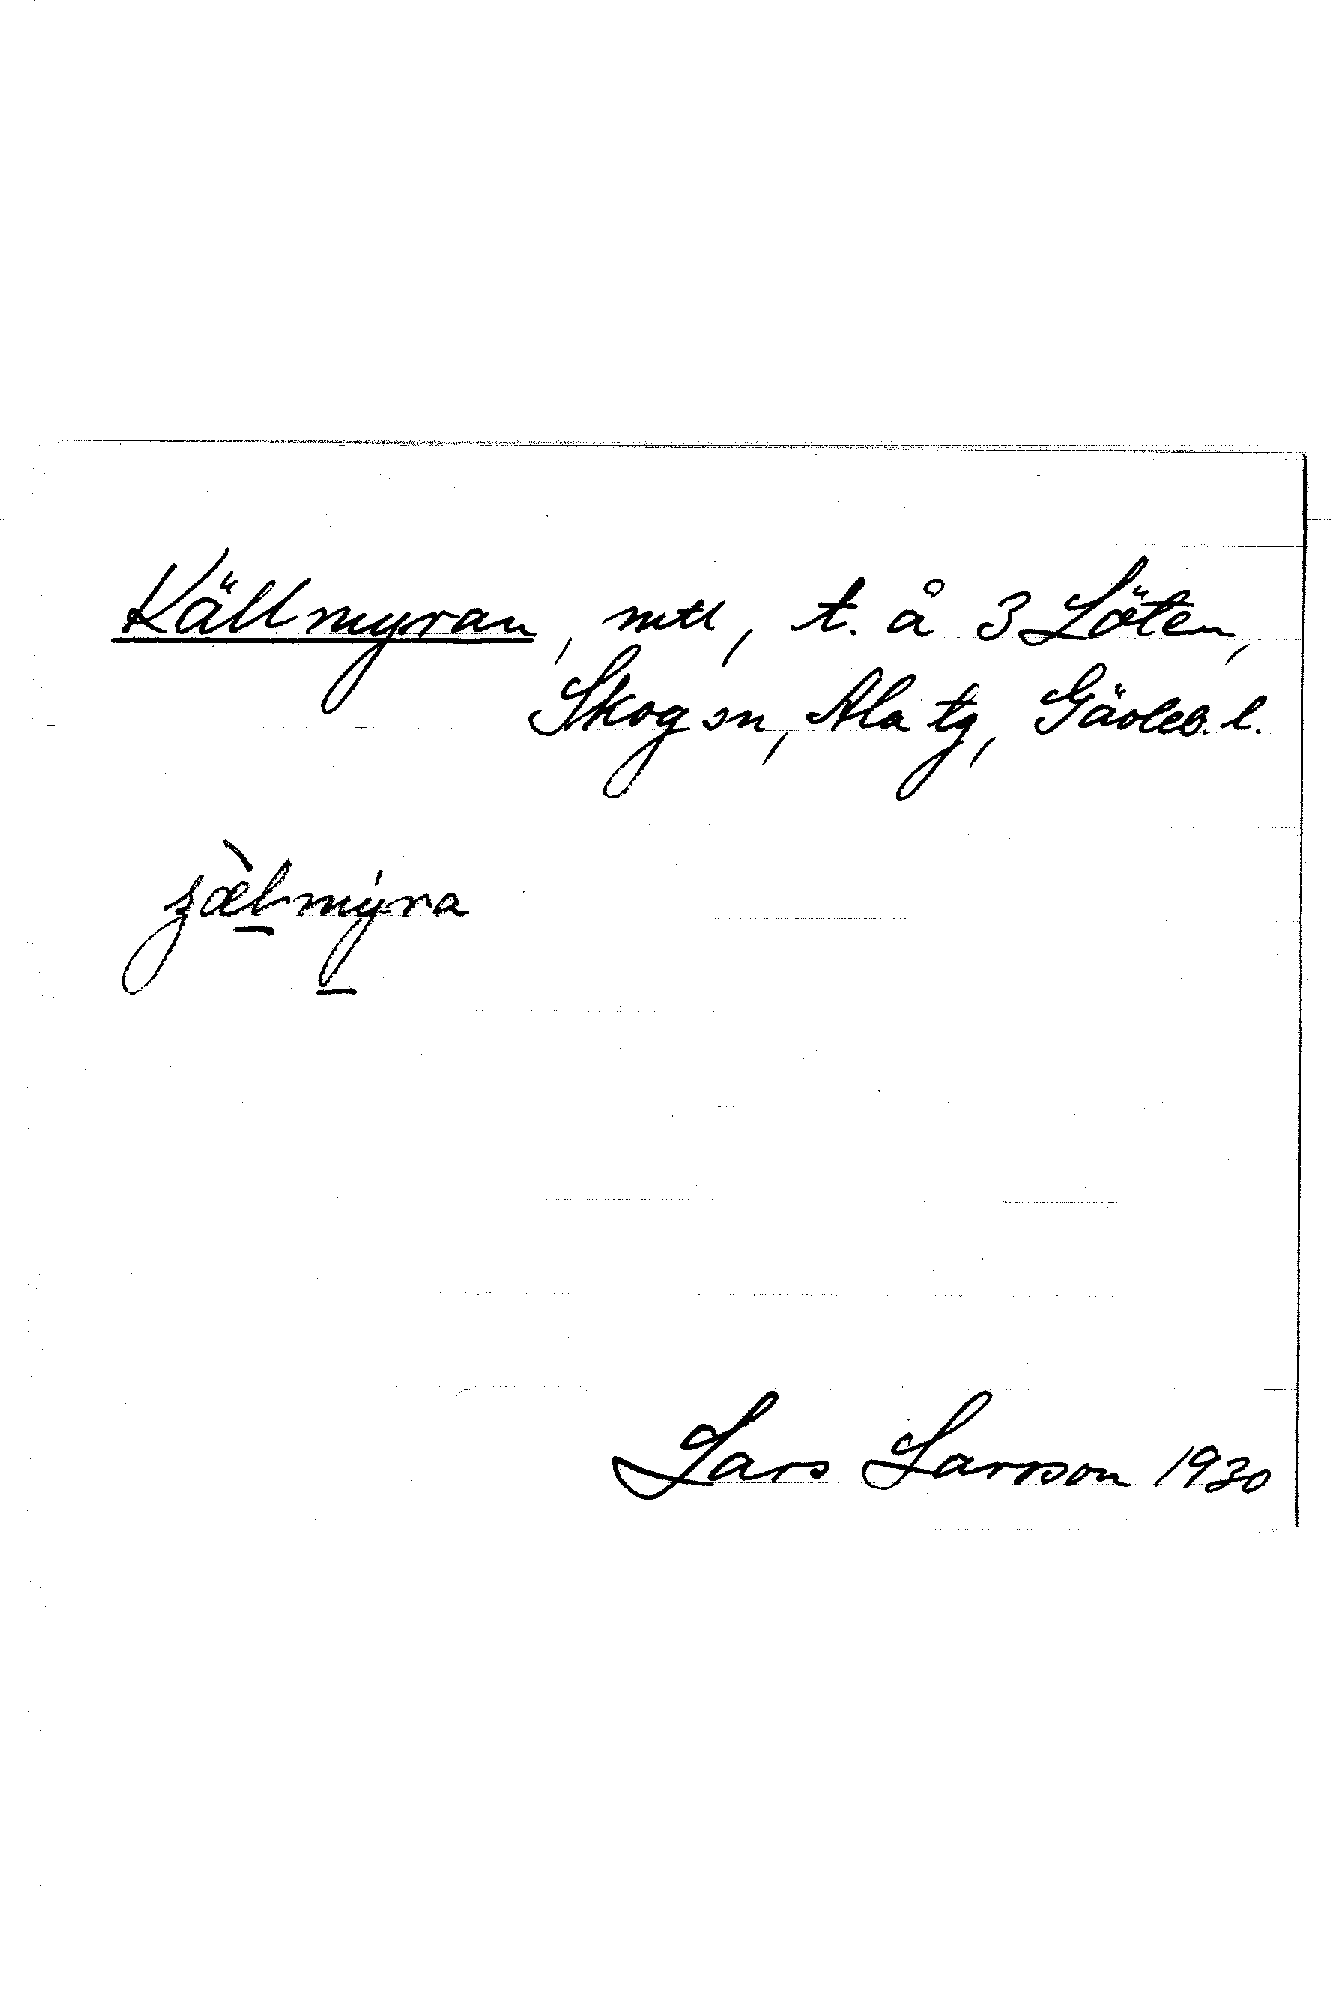 Källmyran, mtl, t. å 3 Löten,
Skog sn, Ala tg, Gävleb. l.
Lars Larsson 1930